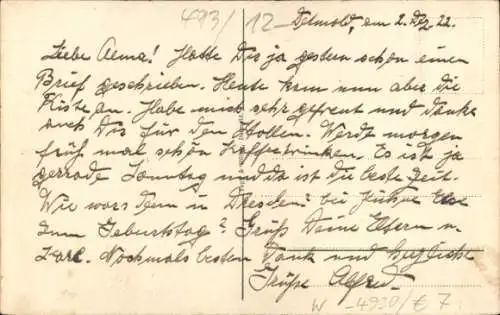 493/12
Detmold, am 2. Dez. 22.
Liebe Aenna! Hatte Dir ja gestern schon einen
Brief geschrieben. Heute kam nun aber die
Kiste an. Habe mich sehr gefreut und danke
auch Dir für den Stollen. Werdt morgen
früh mal schön Kaffeetrinken. Es ist ja
gerrade Sonntag und da ist die beste Zeit.
Wie wars denn in Dresden? bei
zum Geburtstag? Grüß Deine Eltern u.
Karl. Nochmals besten Dank und herzliche
Grüße Alfred.
W -4930/€ 7